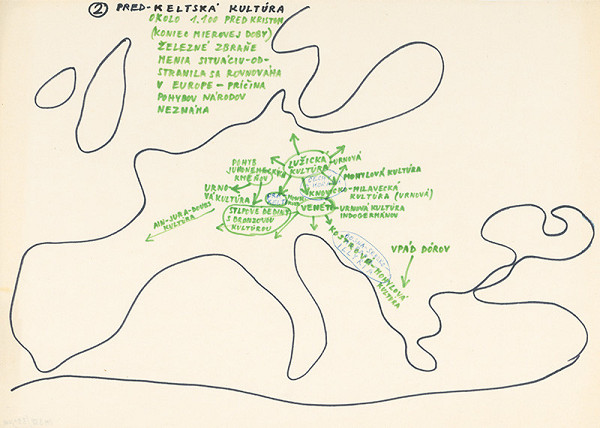 2 PRED-KELTSKÁ KULTÚRA
OKOLO 1.100 PRED KRISTOM
(KONIEC MIEROVEJ DOBY)
ŽELEZNÉ ZBRANE
MENIA SITUÁCIU-OD-
STRANILA SA ROVNOVÁHA
V EUROPE - PRÍČINA
POHYBOV NÁRODOV
NEZNÁMA
LUŽICKÁ
KULTÚRA
-URNOVÁ
POHYB
JUHONEMECKÝCH
KMEŇOV
MOHYLOVÁ KULTÚRA
KNOVICKO-MILAVECKÁ
KULTÚRA (URNOVÁ)
URNO
VÁ KULTÚRA
VENÉTI
-URNOVÁ KULTÚRA
INDOGERMÁNOV
STĹPOVÉ DEDINY
S BRONZOVOU
KULTÚROU
AIN-JURA-DOUBS
KULTÚRA
VPÁD DÓROV
ILLÝRIA
MOHYLOVÁ
KULTÚRA